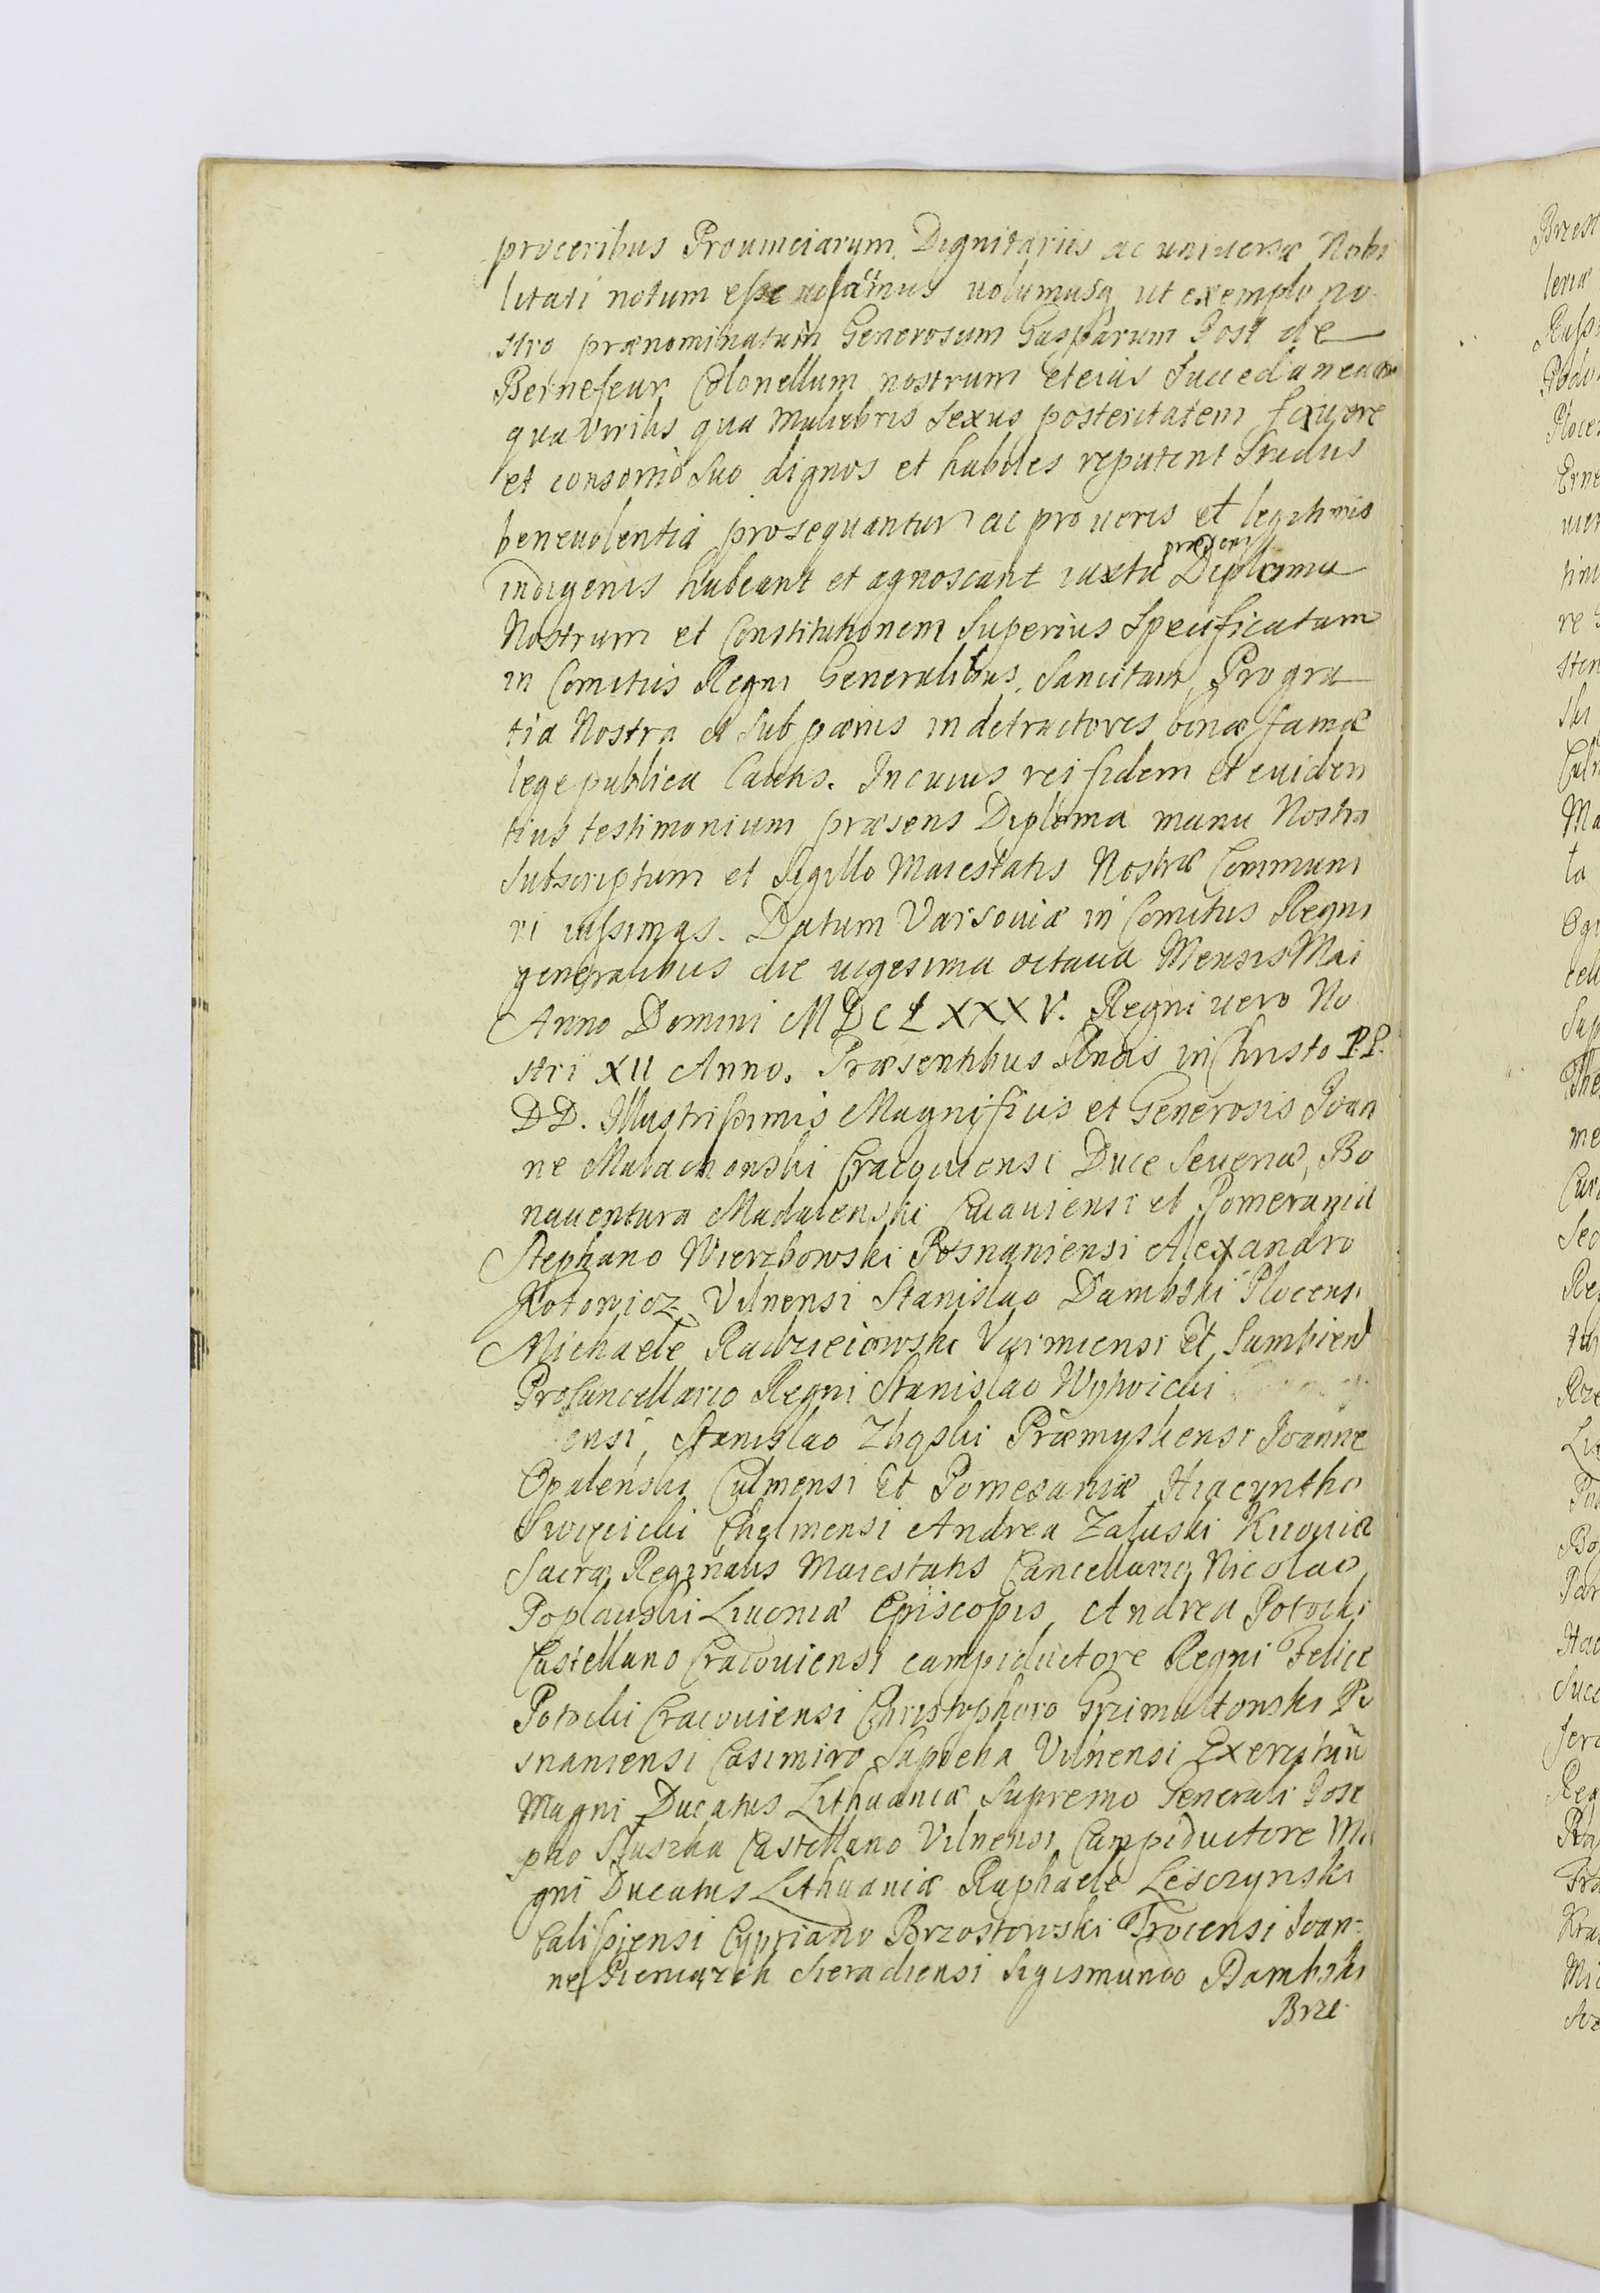 proceribus Prouinciarum Dignitariis ac uniuersæ Nobi
litati notum esse uolumusq ut exemplo no
stro prænominatum Generosum Gasparum Jost de
Bernefeur Colonellum nostrum et eius Succedaneam
qua Virilis qua Muliebris Sexus posteritatem fauore
et consortio Suo dignos et habiles reputent Studiis
beneuolentiá prosequantur ac pro ueris et legitimis
præsens
indigenis habeant et agnoscant iuxta Diploma
Nostrum et Constitutionem Superius Specificatam
in Comitiis Regni Generalibus Sancitam, Pro gra
tia Nostra et Sub pænis in detractores bonæ famæ
lege publica Latis. In cuius rei fidem et euiden
tius testimonium præsens Diploma manu Nostra
Subscriptum et Sigillo Maiestatis Nostræ Communi
ri iussimus. Datum Varsouiæ in Comitiis Regni
generalibus die uigesima octaua Mensis Mai
Anno Domini MDCLXXXV. Regni uero No
stri XII Anno. Præsentibus Rndis in Christo P.P.
DD. Illustrissimis Magnificis et Generosis Joan
ne Malachowski Cracouiensi Duce Seueriæ, Bo
nauentura Madalenski Cuiauiensi et Pomeraniæ
Stephano Wierzbowski Posnaniensi Alexandro
Kotowicz Vilnensi Stanislao Dambski Plocensi
Michaele Radzieiowski Varmiensi et Sambiens
Procancellario Regni Stanislao Wyhvicki
ensi, Stanislao Zbąski Præmysliensi Joanne
Opaleński Culmensi et Pomesaniæ Hiacyntho
Swięcicki Chelmensi Andrea Zaluski Kiouiæ
Sacra Reginalis Maiestatis Cancellario, Nicolao
Poplauski Liuoniæ Episcopis, Andrea Potocki
Castellano Cracouiensi campiductore Regni Felice
Potocki Cracouiensi Christophoro Grzimultowski Po
snaniensi Casimiro Sapieha Vilnensi Exercituũ
Magni Ducatus Lithuaniæ Supremo Generali Jose
pho Sluszka Castellano Vilnensi Campiductore Ma
gni Ducatus Lithuaniæ Raphaele Lesczynski
Calissiensi Cypriano Brzostowski Trocensi Joan=
ne Pieniązek Sieradiensi Sigismundo Dambski
Brze